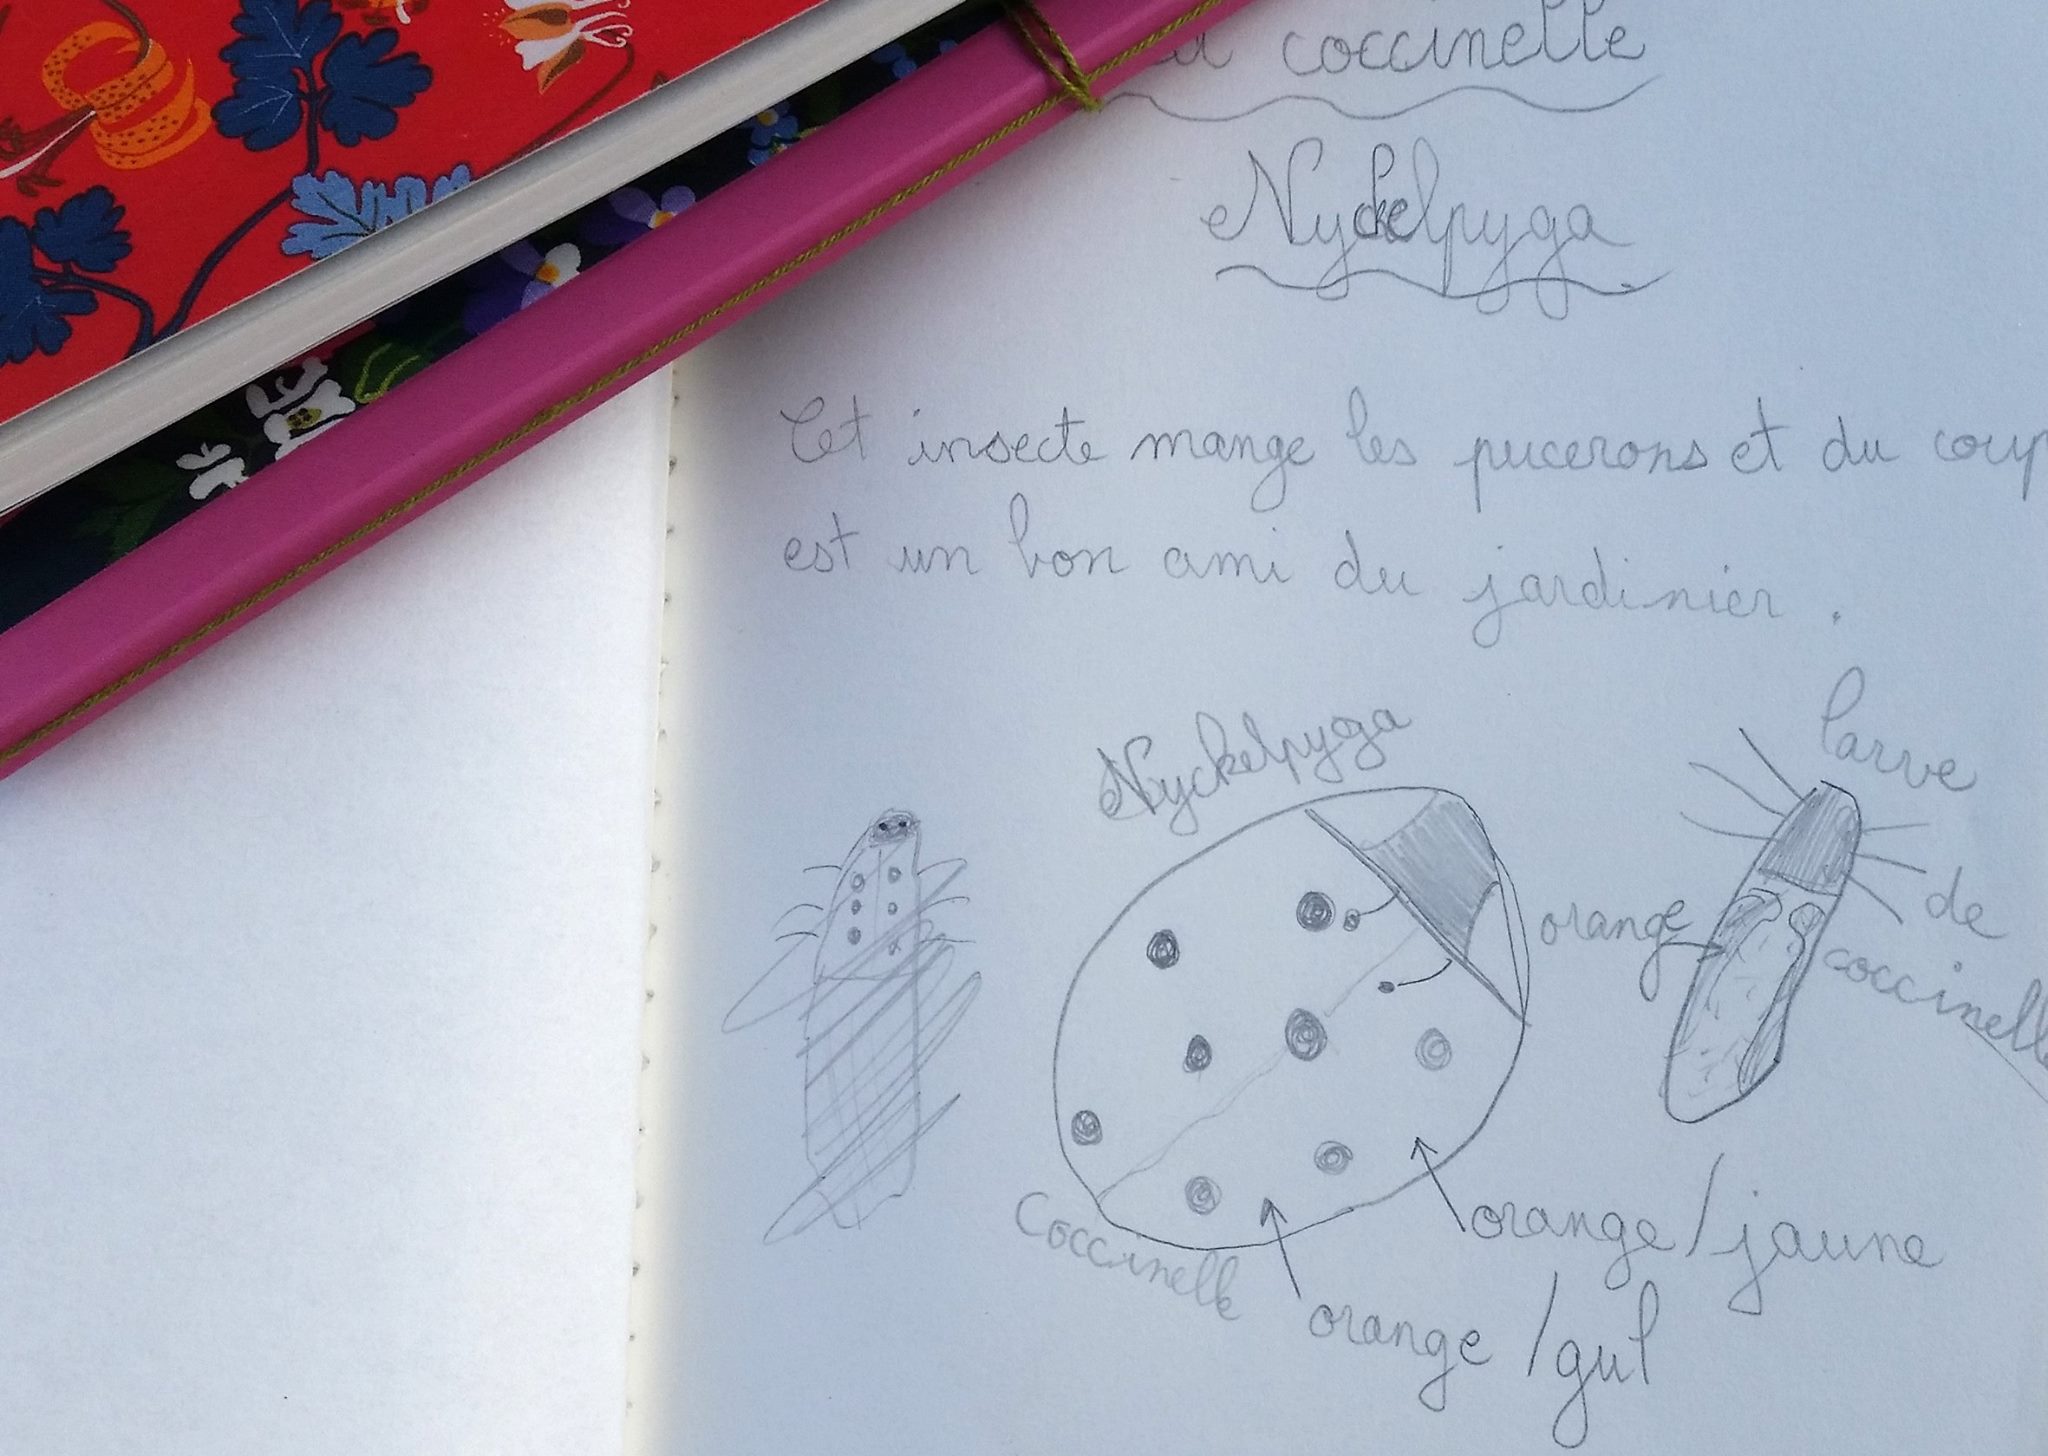 coccinelle
Nyckelpyga
Cet insecte mange les pucerons et du coup
est un bon ami du jardinier.
Nyckelpyga
larve
de
coccinelle
orange
Coccinelle
orange/jaune
orange/gul